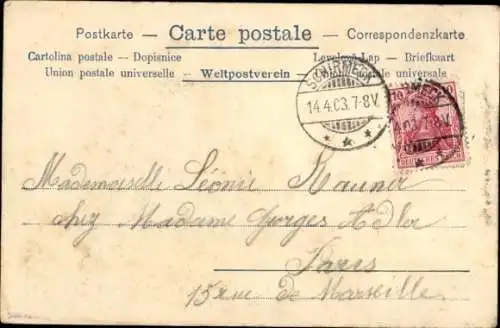 Postkarte — Carte postale — Correspondenzkarte
Cartolina postale — Dopisnice Levelező-Lap — Briefkaart
Union postale universelle — Weltpostverein — Union postale universale
SCHIRMECK
14.4.03.7-8V.
10
MECK
.03.7-8V.
DEUTSCHES REICH
Mademoiselle Léonie Rauner
chez Madame Georges Adler
Paris
15 rue de Marseille.